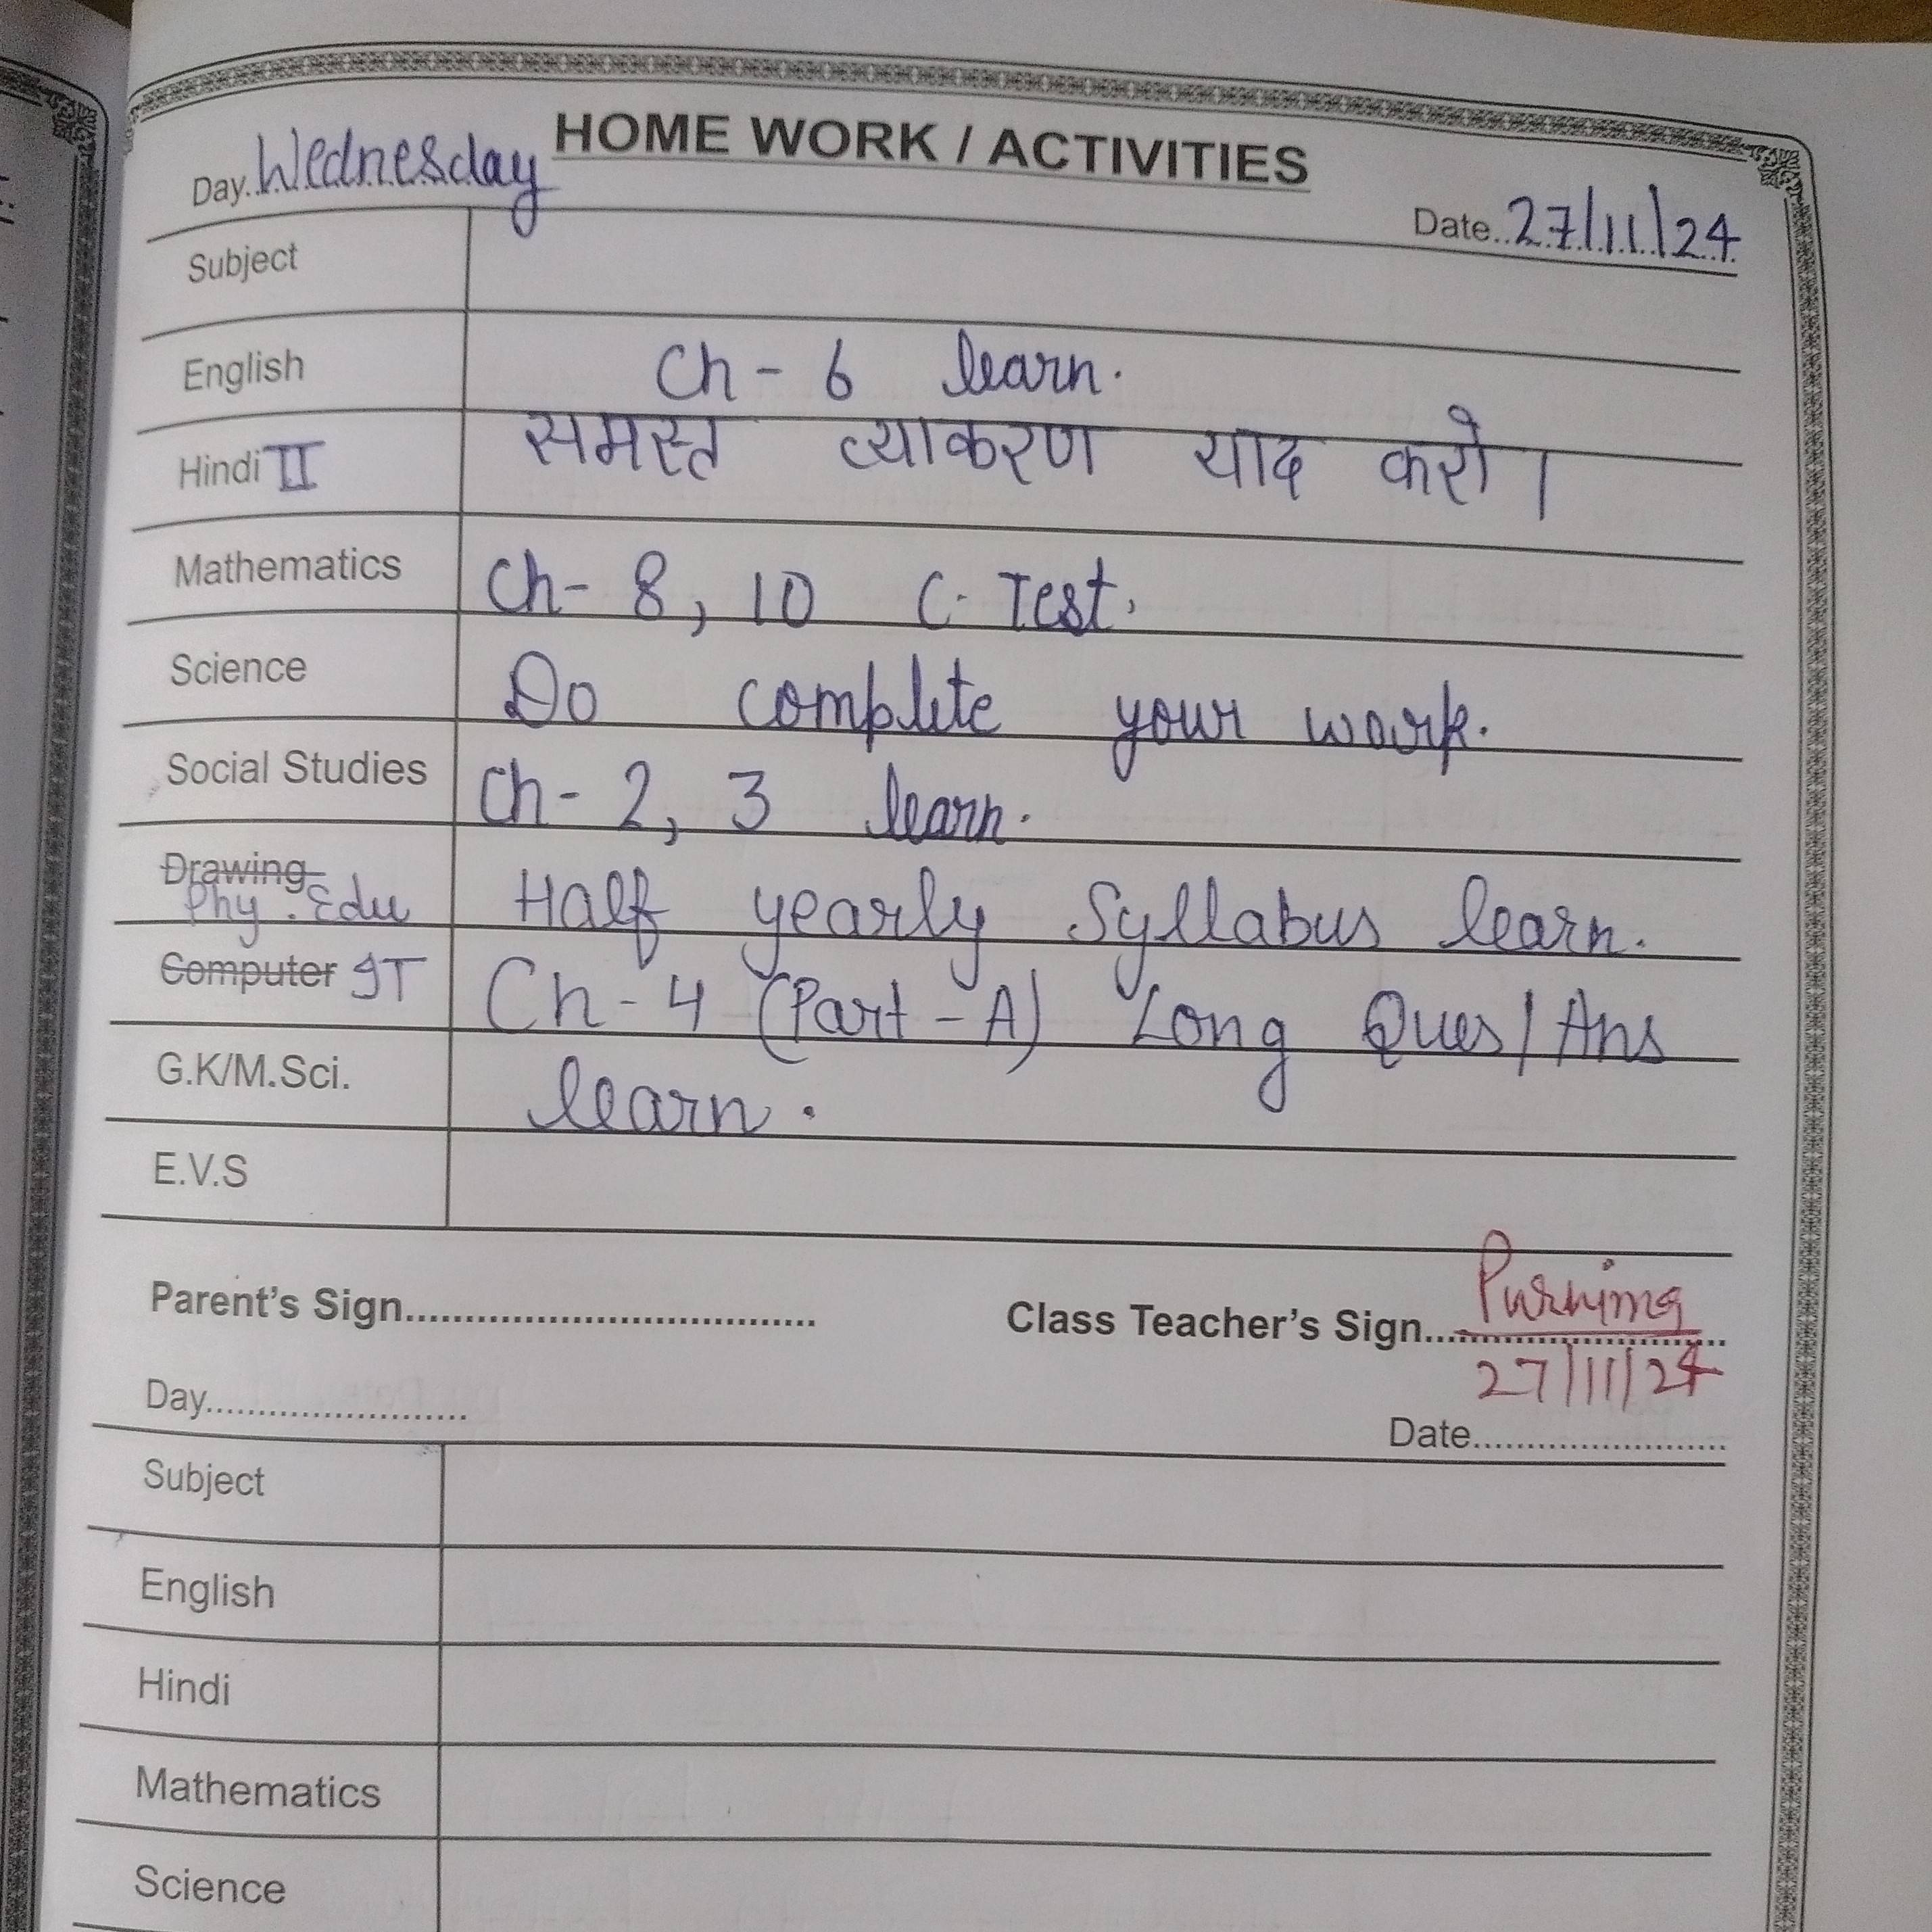 HOME WORK / ACTIVITIES
Day. Wednesday
Date.. 27/11/24
Subject
English Ch - 6 learn.
Hindi II समस्त व्याकरण याद करो ।
Mathematics Ch- 8, 10 C. Test.
Science Do complete your work.
Social Studies Ch- 2, 3 learn.
Drawing
Phy. Edu Half yearly Syllabus learn.
Computer IT Ch - 4 (Part - A) Long Ques/Ans
G.K/M.Sci. learn.
E.V.S
Parent's Sign................................... Class Teacher's Sign.... Purnima
27/11/24
Day.........................
Date........................
Subject
English
Hindi
Mathematics
Science